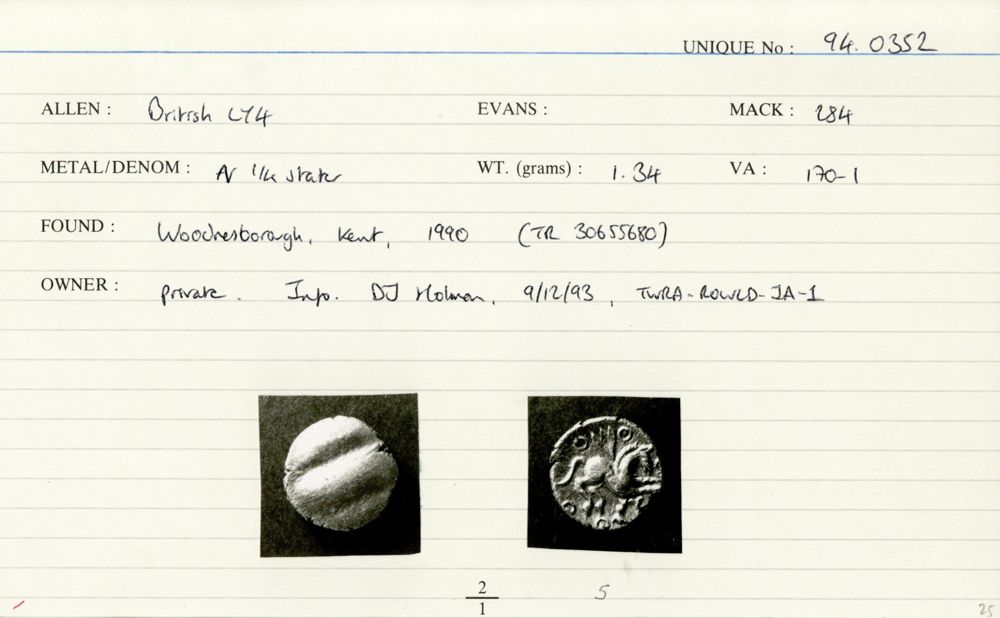 UNIQUE No : 94.0352
ALLEN : British LY4 EVANS : MACK : 284
METAL/DENOM : AV 1/4 stater WT. (grams) : 1.34 VA : 170-1
FOUND : Woodnesborough, Kent, 1990 (TR 30655680)
OWNER : private. Info. DJ Holman, 9/12/93,
2
1
5
25